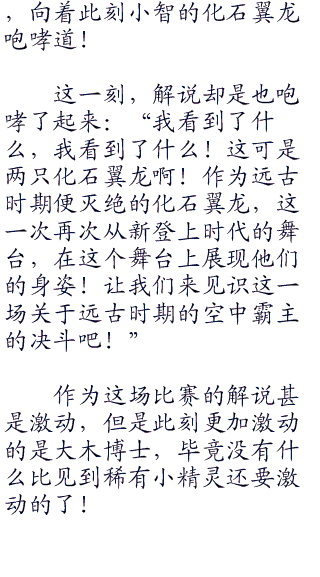 ，向着此刻小智的化石翼龙
咆哮道！
这一刻，解说却是也咆
哮了起来：“我看到了什
么，我看到了什么！这可是
两只化石翼龙啊！作为远古
时期便灭绝的化石翼龙，这
一次再次从新登上时代的舞
台，在这个舞台上展现他们
的身姿！让我们来见识这一
场关于远古时期的空中霸主
的决斗吧！”
作为这场比赛的解说甚
是激动，但是此刻更加激动
的是大木博士，毕竟没有什
么比见到稀有小精灵还要激
动的了！